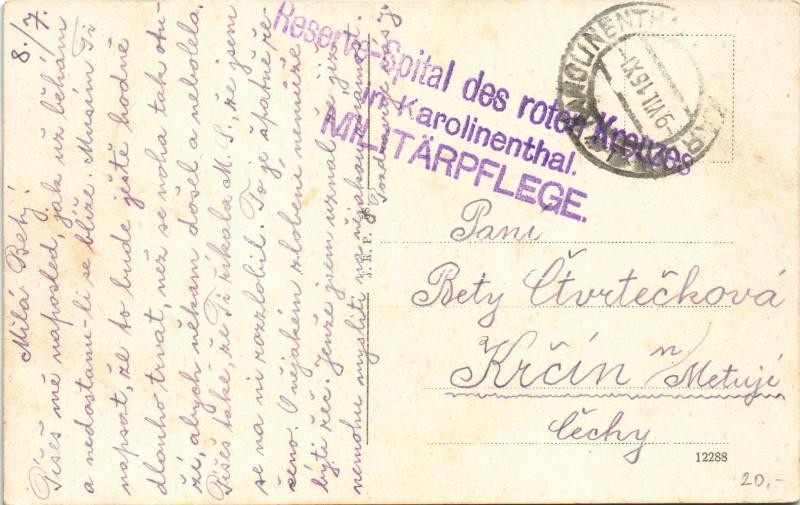 8./7.
Milá Bety!
Píšeš mě naposled, jak už běhám
a nedostanu-li se blíže. Musím Ti
napsat, že to bude ještě hodně
dlouho trvat, než se noha tak
zí, abych někam došel a nebolela.
Píšeš také, že Ti říkala M. S., že jsem
se na ni rozzlobil. To je špatně ře-
čeno. O nějakém zlobení nemůže
býti řeč. Jenže jsem uznal, že již
nemohu mysliti na nějakou
Pozdravuje
Reserve-Spital des roten Kreuzes
in Karolinenthal.
MILITÄRPFLEGE.
KAROLINENTHAL
9.VII.15.XI
Paní
Bety Čtvrtečková
Krčín n/ Metují
Čechy
12288
20,-